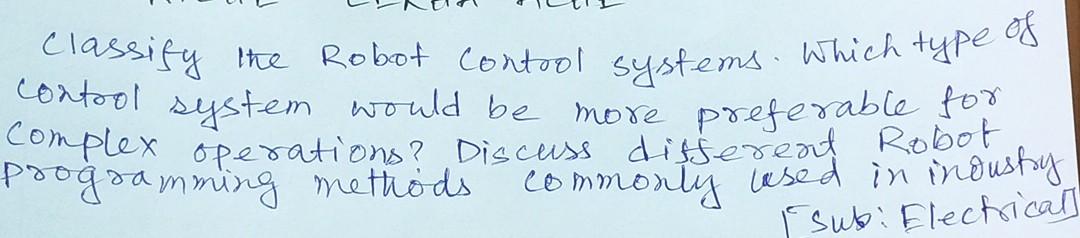 Classify the Robot Control systems. Which type of
Control system would be more preferable for
Complex operations? Discuss different Robot
programming methods commonly used in industry
[Sub: Electrical]